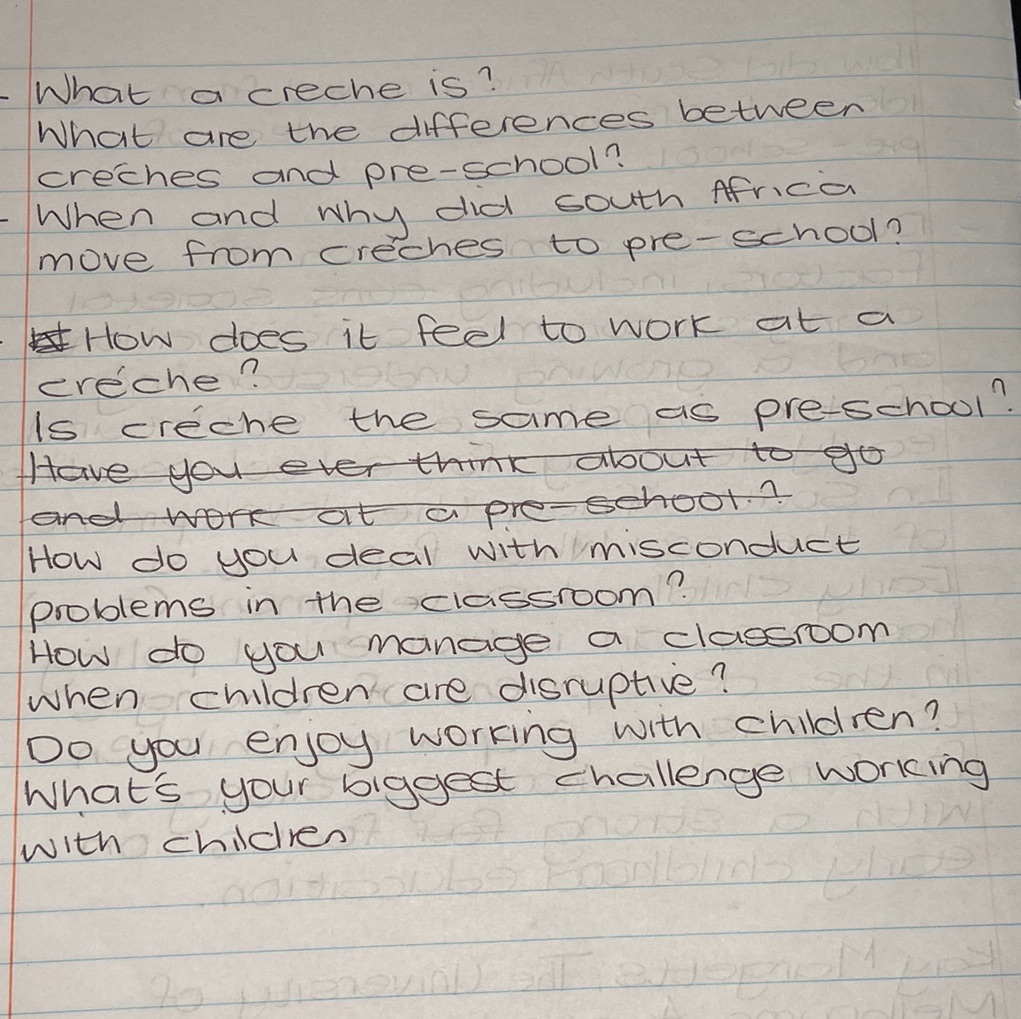 - What a creche is?
What are the differences between
créches and pre-school?
- When and why did south Africa
move from créches to pre-school?
- How does it feel to work at a
créche?
Is créche the same as pre-school?
Have you ever think about to go
and work at a pre-school.?
How do you deal with misconduct
problems in the classroom?
How do you manage a classroom
when children are disruptive?
Do you enjoy working with children?
What's your biggest challenge working
with children